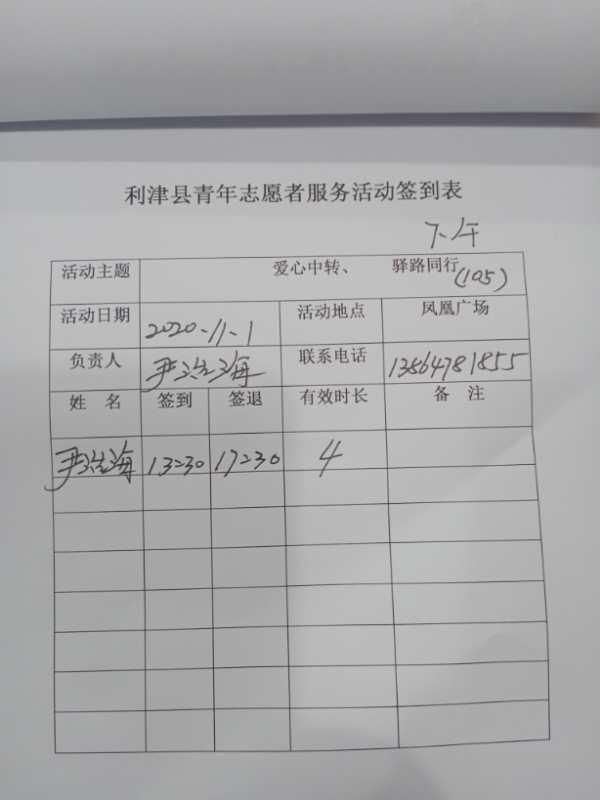 利津县青年志愿者服务活动签到表
下午
活动主题 爱心中转、 驿路同行(105)
活动日期 2020-11-1 活动地点 凤凰广场
负责人 尹浩海 联系电话 13864781855
姓 名 签到 签退 有效时长 备 注
尹浩海 13:30 17:30 4